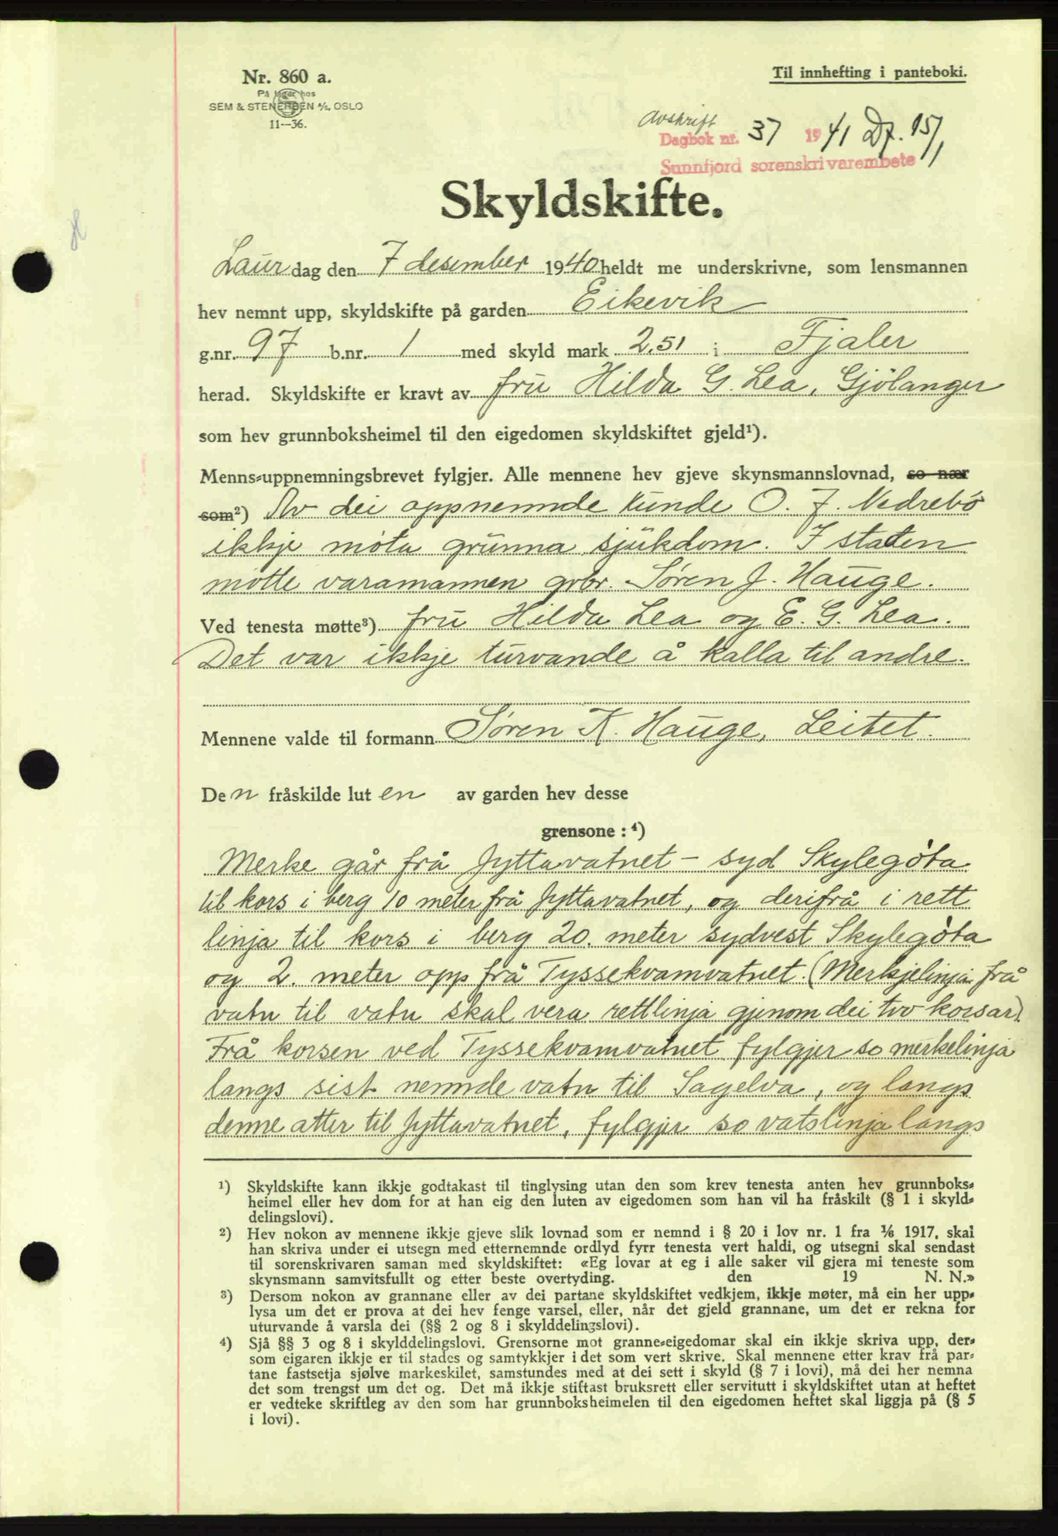 Nr. 860 a.
På lager hos
SEM & STENERSEN A/S, OSLO
11—36.
Til innhefting i panteboki.
Avskrift
Dagbok nr. 37 1941 Df. 15/1
Sunnfjord sorenskrivarembete
Skyldskifte.
Laurdag den 7 desember 1940 heldt me underskrivne, som lensmannen
hev nemnt upp, skyldskifte på garden Eikevik
g.nr. 97 b.nr. 1 med skyld mark 2.51 i Fjaler
herad. Skyldskifte er kravt av fru Hilda G. Lea, Gjölanger
som hev grunnboksheimel til den eigedomen skyldskiftet gjeld¹).
Menns-uppnemningsbrevet fylgjer. Alle mennene hev gjeve skynsmannslovnad, so nær
som²) Av dei oppnemnde kunde O. J. Nedrebö
ikkje möta grunna sjukdom. I staden
møtte varamannen gbr. Søren J. Hauge.
Ved tenesta møtte³) fru Hilda Lea og E. G. Lea.
Det var ikkje turvande å kalla til andre.
Mennene valde til formann Søren K. Hauge, Leitet.
Den fråskilde luten av garden hev desse
grensone : ⁴)
Merke går frå Jyttavatnet - syd Skylegöta
til kors i berg 10 meter frå Jyttavatnet, og derifrå i rett
linja til kors i berg 20. meter sydvest Skylegöta
og 2. meter opp frå Tyssekvamvatnet. (Merkjelinja frå
vatn til vatn skal vera rettlinja gjenom dei tvo korsar).
Frå korsen ved Tyssekvamvatnet fylgjer so merkelinja
langs sist nemnde vatn til Sagelva, og langs
denne atter til Jyttavatnet, fylgjer so vatslinja langs
¹) Skyldskifte kann ikkje godtakast til tinglysing utan den som krev tenesta anten hev grunnboks-
heimel eller hev dom for at han eig den luten av eigedomen som han vil ha fråskilt (§ 1 i skyld-
delingslovi).
²) Hev nokon av mennene ikkje gjeve slik lovnad som er nemnd i § 20 i lov nr. 1 fra 1/6 1917, skal
han skriva under ei utsegn med etternemnde ordlyd fyrr tenesta vert haldi, og utsegni skal sendast
til sorenskrivaren saman med skyldskiftet: «Eg lovar at eg i alle saker vil gjera mi teneste som
skynsmann samvitsfullt og etter beste overtyding. den 19 N. N.»
³) Dersom nokon av grannane eller av dei partane skyldskiftet vedkjem, ikkje møter, må ein her upp-
lysa um det er prova at dei hev fenge varsel, eller, når det gjeld grannane, um det er rekna for
uturvande å varsla dei (§§ 2 og 8 i skylddelingslovi).
⁴) Sjå §§ 3 og 8 i skylddelingslovi. Grensorne mot granne-eigedomar skal ein ikkje skriva upp, der-
som eigaren ikkje er til stades og samtykkjer i det som vert skrive. Skal mennene etter krav frå par-
tane fastsetja sjølve markeskilet, samstundes med at dei sett i skyld (§ 7 i lovi), må dei her nemna
det som trengst um det og. Det må ikkje stiftast bruksrett eller servitutt i skyldskiftet utan at heftet
er vedteke skriftleg av den som har grunnboksheimelen til den eigedomen heftet skal liggja på (§ 5
i lovi).